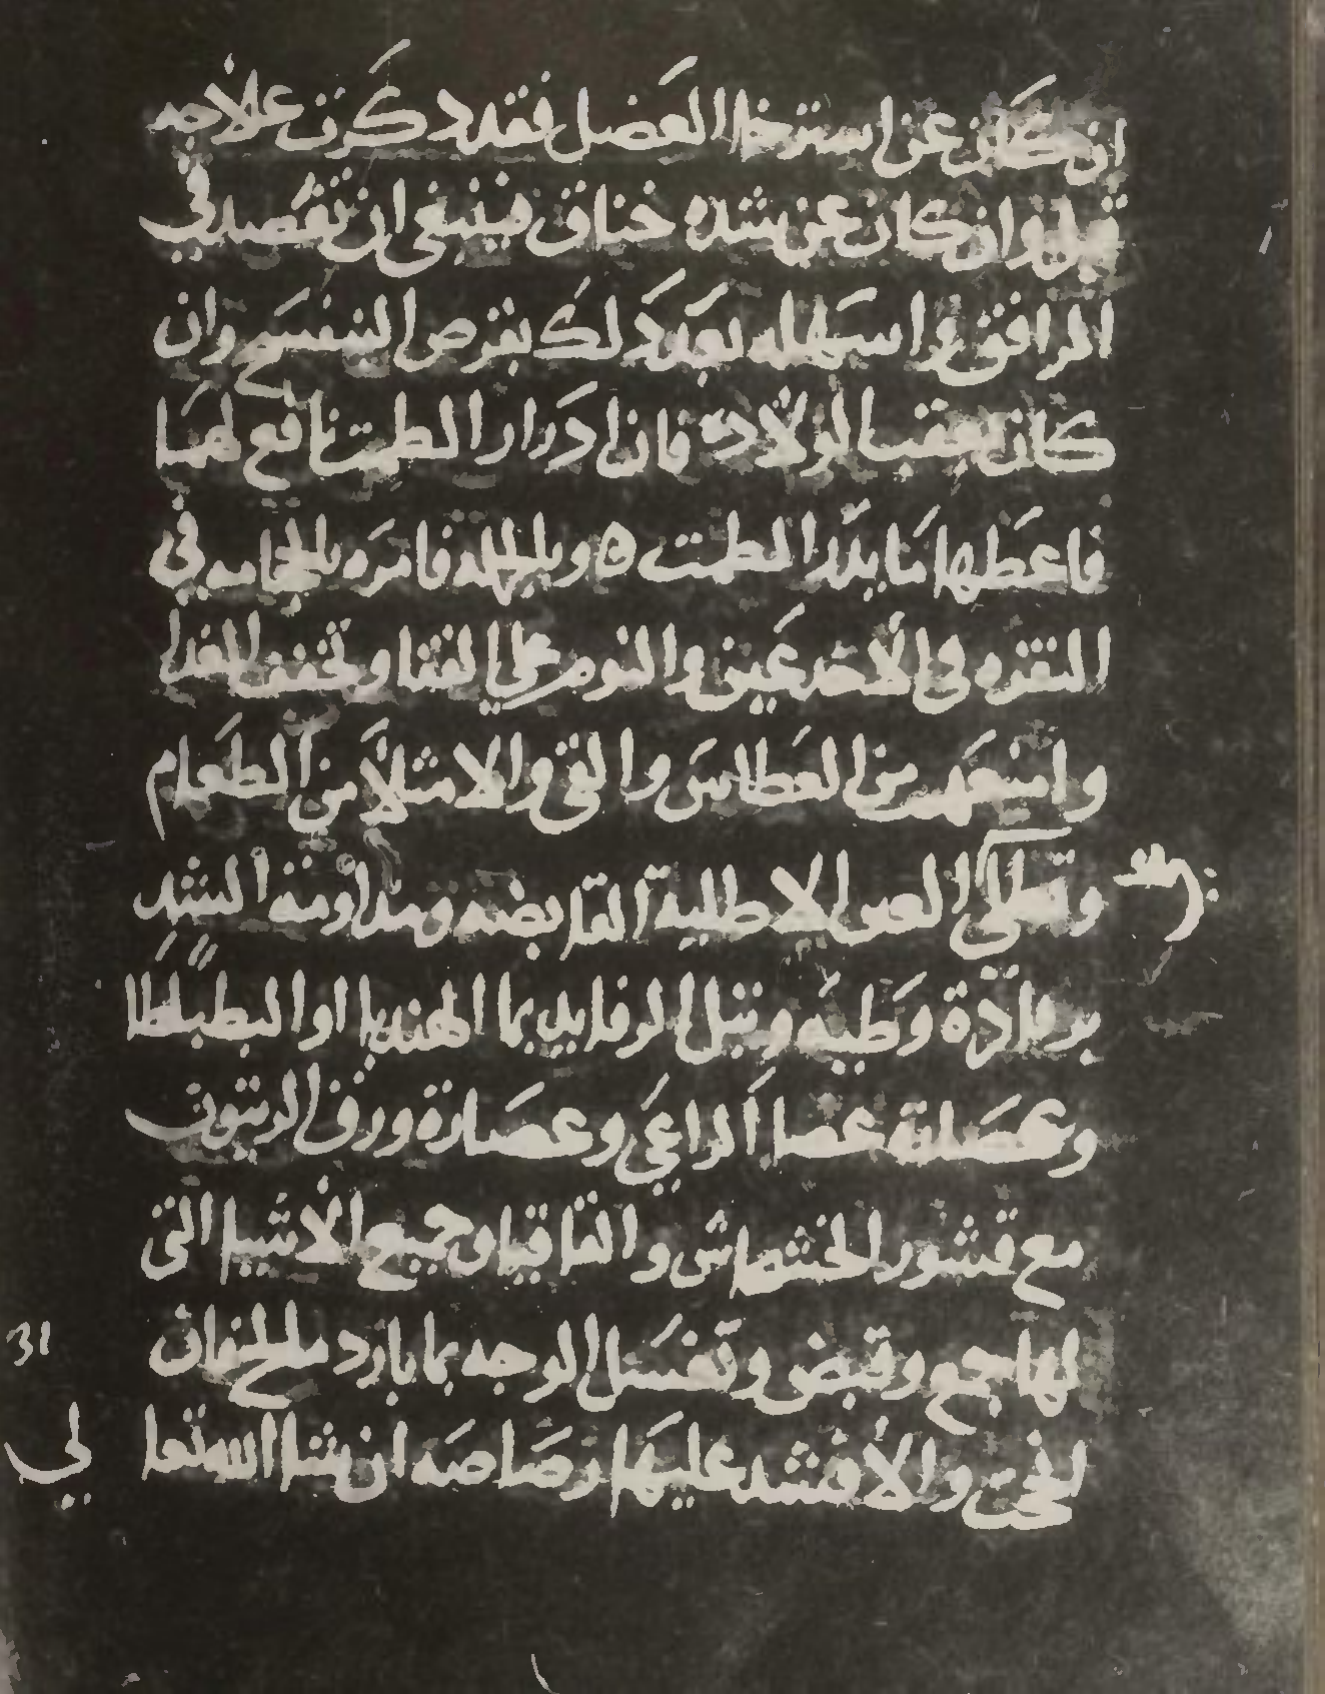 ان كان عن استرخا العضل فقد ذكرت علاجه
قبل وان كان عن شده خناق فينبغي ان تفصد في
المرافق واسهله بعد ذلك بقرص البنفسج وان
كان بعقب الولادة فان ادرار الطمت نافع لها
فاعطها ما يدر الطمت ٥ وبالجمله فامره بالحجامه في
النقره في الاخدعين والنوم علي القفا وتخفيف الغدا
وامنعهم من العطاس والقي والامتلا من الطعام
وتطلي العين الاطلية القابضه ومداومة الشد
برفادة وطيه وتبل الرفايد بما الهندبا او البطباط
وعصارة عصا الراعي وعصارة ورق الزيتون
مع قشور الخشخاش والقاقيا وجميع الاشيا التي
لها جمع وقبض وتغسل الوجه بما بارد مالح فان
نجي والا فشد عليها رصاصه ان شا الله تعا
لي
31